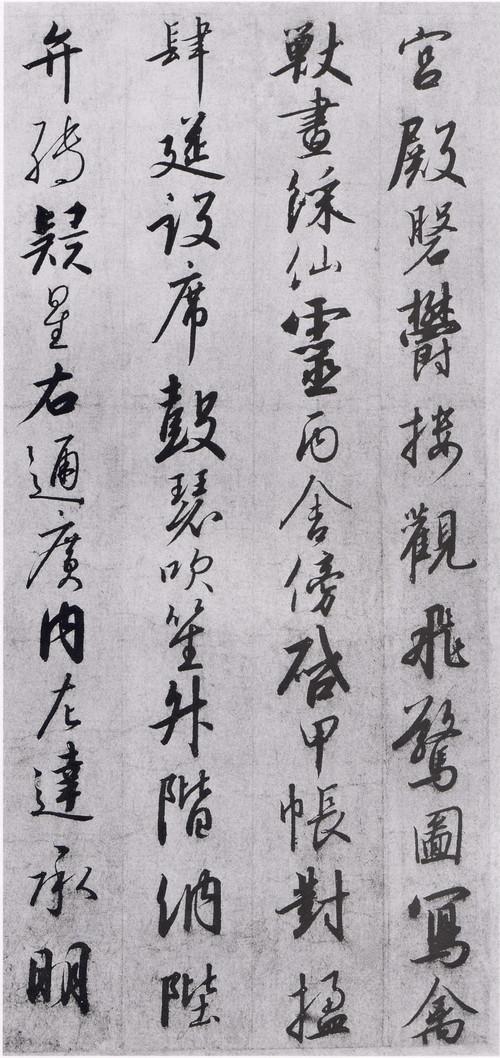 宮殿磐鬱樓觀飛驚圖寫禽
獸畫綵仙靈丙舍傍啓甲帳對楹
肆筵設席鼓瑟吹笙升階納陛
弁轉疑星右通廣內左達承明